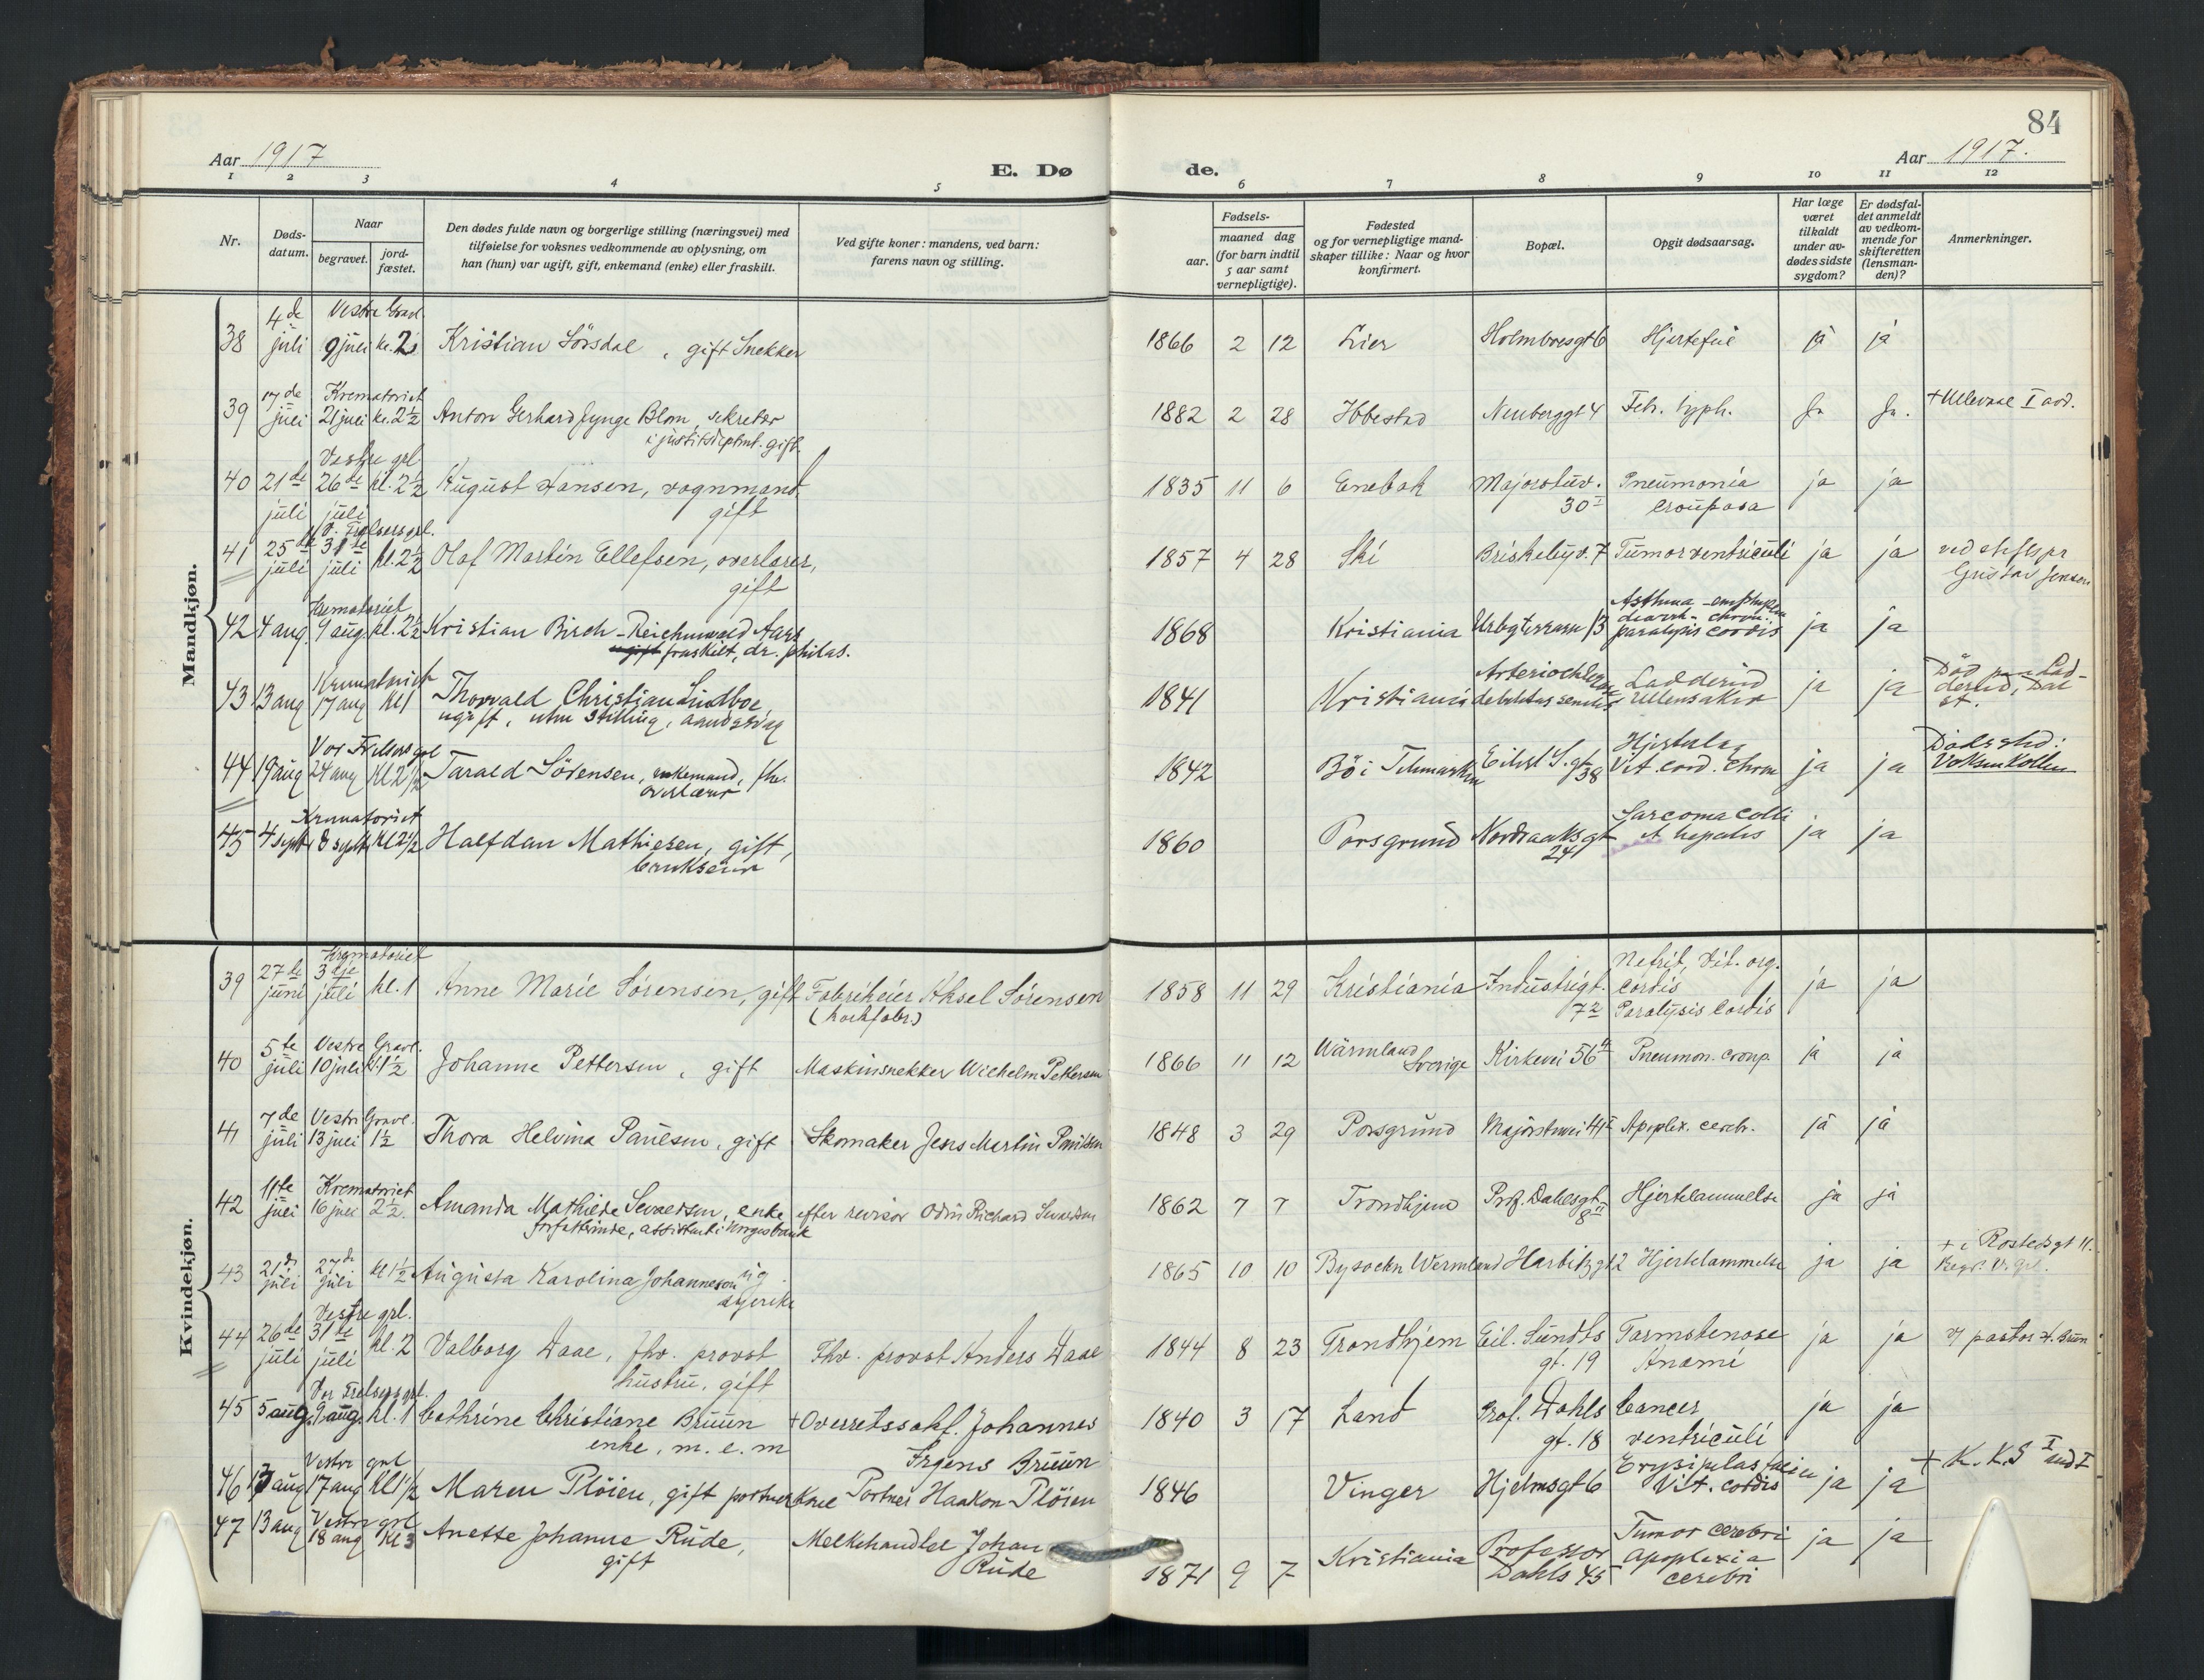 84
Aar 1917
E. Dø
de.
Aar 1917.
1 2 3 4 5 6 7 8 9 10 11 12
Nr.
Døds-datum.
Naar
begravet.
jord-fæstet.
Den dødes fulde navn og borgerlige stilling (næringsvei) med
tilføielse for voksnes vedkommende av oplysning, om
han (hun) var ugift, gift, enkemand (enke) eller fraskilt.
Ved gifte koner: mandens, ved barn:
farens navn og stilling.
Fødsels-
aar.
maaned dag
(for barn indtil
5 aar samt
vernepligtige).
Fødested
og for vernepligtige mand-
skaper tillike: Naar og hvor
konfirmert.
Bopæl.
Opgit dødsaarsag.
Har læge
været
tilkaldt
under av-
dødes sidste
sygdom?
Er dødsfal-
det anmeldt
av vedkom-
mende for
skifteretten
(lensman-
den)?
Anmerkninger.
Mandkjøn.
38 4de juli Vestre Gravl. 9 juli kl. 2 Kristian Sörsdal, gift Snekker 1866 2 12 Lier Holmboesgt 6 Hjertefeil ja ja
39 17de juli Krematoriet 21 juli kl. 2½ Anton Gerhard Jynge Blom, sekretær
i justitsdeptmt. gift. 1882 2 28 Ibbestad Neuberggt 4 Feb. typh. Ja Ja. + Ullevaal I avd.
40 21de juli Vestre grl. 26de juli kl. 2½ August Hansen, vognmand.
gift 1835 11 6 Enebak Majorstuv. 30 I Pneumonia crouposa ja ja
41 25de juli V. Frelsersgrl. 31te juli kl. 2½ Olaf Martin Ellefsen, overlærer,
gift 1857 4 28 Ski Briskebyv. 7 Tumor ventriculi ja ja ved
Gustav Jensen
42 4 aug. Krematoriet 9 aug. kl. 2½ Kristian Birch-Reichenwald Aars
ugift fraskilt, dr. philos. 1868 Kristiania 13 Asthma
chron.
paralysis cordis ja ja
43 13 aug Krematoriet 17 aug kl 1 Thorvald Christian Lindboe,
ugift, uten stilling, aandssvag 1841 Kristiania
debilitas senilis Ladderud
Ullensaker ja ja Död paa Lad-
derud, Dal
st.
44 19 aug Vor Frelsers grl 24 aug Kl 2½ Tarald Sörensen, enkemand, fhv.
overlærer 1842 Bö i Telemarken Eilert S. gt 38 Hjerteslag
Vit. cord. chron ja ja Dödssted:
Voksenkollen
45 4 sept Krematoriet 8 sept Kl 2½ Halfdan Mathiesen, gift,
brukseier 1860 Porsgrund Nordraaksgt
24 Sarcoma colli
et hepatis ja ja
Kvindekjøn.
39 27de juni Krematoriet 3dje juli kl. 1 Anne Marie Sörensen, gift Fabrikeier Aksel Sörensen
(korkfabr.) 1858 11 29 Kristiania Industrigt. 72 Nefrit, Vit. org.
cordis
Paralysis cordis ja ja
40 5te juli Vestre Gravl. 10 juli kl. 1½ Johanne Pettersen, gift Maskinsnekker Wilhelm Pettersen 1866 11 12 Wärmland
Sverige Kirkevei 56 Pneumon. croup. ja ja
41 7de juli Vestre Gravl. 13 juli 1½ Thora Helvina Paulsen, gift Skomaker Jens Martin Paulsen 1848 3 29 Porsgrund Majorstuvei 41 Apoplex. cerebr. ja ja
42 11te juli Krematoriet 16 juli 2½. Amanda Mathilde Sevaldsen, enke
forfatterinde, assistent i Norges bank efter revisor Odin Richard Sevaldsen 1862 7 7 Trondhjem Prof. Dahlsgt 8 II Hjertelammelse ja ja
43 21de juli 27de juli kl 1½ Augusta Karolina Johannesson ug.
syerske 1865 10 10 Wermland Harbitzgt 2 Hjertelammelse ja ja + i Rostedsgt 11.
Begr. V. grl.
44 26de juli Vestre grl. 31te juli kl. 2 Valborg Daae, fhv. provst
hustru, gift Fhv. provst Anders Daae 1844 8 23 Trondhjem Eil. Sundts
gt. 19 Tarmstenose
Anæmi ja ja v/ pastor H. Bruun
45 5 aug. Vor Frelsers grl. 9 aug. kl. 1 Cathrine Christiane Bruun
enke, m. e. m + Overretssakf. Johannes
Irgens Bruun 1840 3 17 Land Prof. Dahls
gt. 18 Cancer
ventriculi ja ja
46 13 aug Vestre grl 17 aug Kl 1½ Maren Plöien, gift portnerkone Portner Haakon Plöien 1846 Vinger Hjelmsgt 6 Erysipelas faciei
Vit. cordis ja ja + K. K. S I avd I
47 13 aug Vestre grl 18 aug Kl 3 Anette Johanne Rude,
gift Melkehandler Johan
Rude 1871 9 7 Kristiania Professor
Dahls 45 Tumor cerebri
Apoplexia
cerebri ja ja